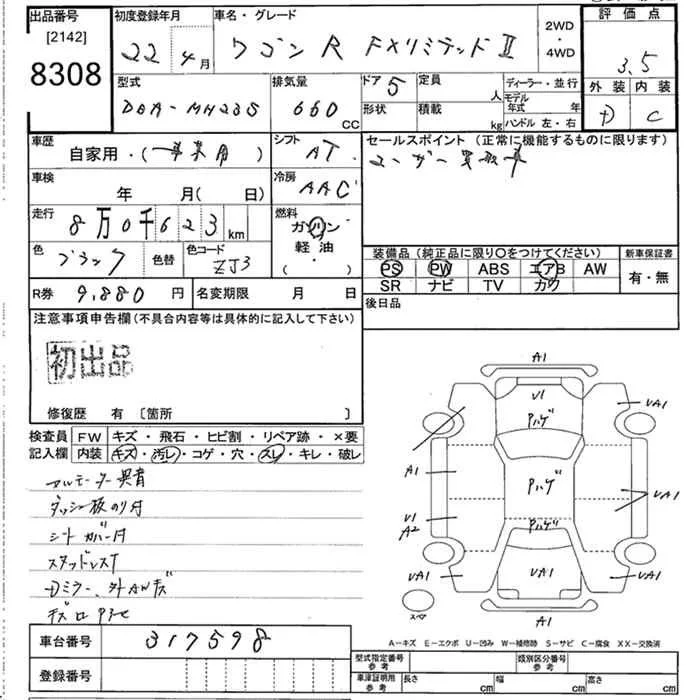 出品番号 [2142] 8308
初度登録年月 22年 4月
車名・グレード ワゴンR FXリミテッドⅡ
2WD・4WD
評価点 3.5
外装 D 内装 C
型式 DBA-MH23S
排気量 660 CC
ドア 5 形状
定員 人
積載 kg
ディーラー・並行
モデル年式 年
ハンドル 左・右
車歴 自家用・(事業用)
シフト AT
セールスポイント (正常に機能するものに限ります)
ユーザー買取車
車検 年 月(日)
冷房 AAC
走行 8万0千623km
燃料 ガソリン 軽油 ( ・ )
色 ブラック 色替 色コード ZJ3
装備品 (純正品に限り○をつけてください) 新車保証書
PS PW ABS エアB AW 有・無
SR ナビ TV カワ
R券 9,880円 名変期限 月 日
後日品
注意事項申告欄(不具合内容等は具体的に記入して下さい)
初出品
修復歴 有 〔箇所 〕
検査員記入欄 FW キズ・飛石・ヒビ割・リペア跡・×要
内装 キズ・汚レ・コゲ・穴・スレ・キレ・破レ
ダッシュ板のり付
シートカバー付
スタッドレスT
Dミラー、外AWキズ
A1
U1
VA1 Pハゲ VA1
A1 Pハゲ VA1
U1 A2 Pハゲ
VA1 VA1 VA1
スペア A1
A-キズ E-エクボ U-凹み W-補修跡 S-サビ C-腐食 XX-交換済
車台番号 317598
登録番号
型式指定番号 参考 類別区分番号 参考
車庫証明用 参考 長さ cm 幅 cm 高さ cm